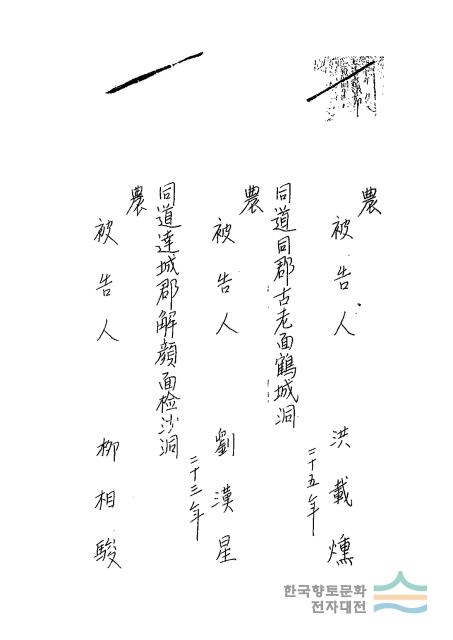 農
被告人 洪載燻
二十五年
同道同郡古老面鶴城洞
農
被告人 劉漢星
二十三年
同道達城郡解顔面検沙洞
農
被告人 柳相駿
한국향토문화
전자대전